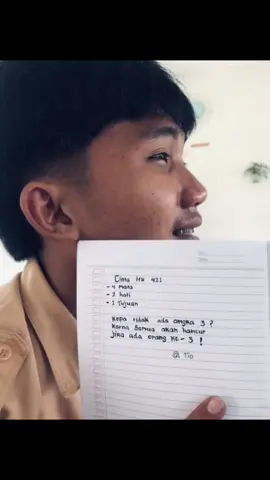 Cinta itu 421
- 4 mata
- 2 hati
- 1 tujuan
Kepa tidak ada angka 3 ?
Karna semua akan hancur
jika ada orang ke - 3 !
@ Tio